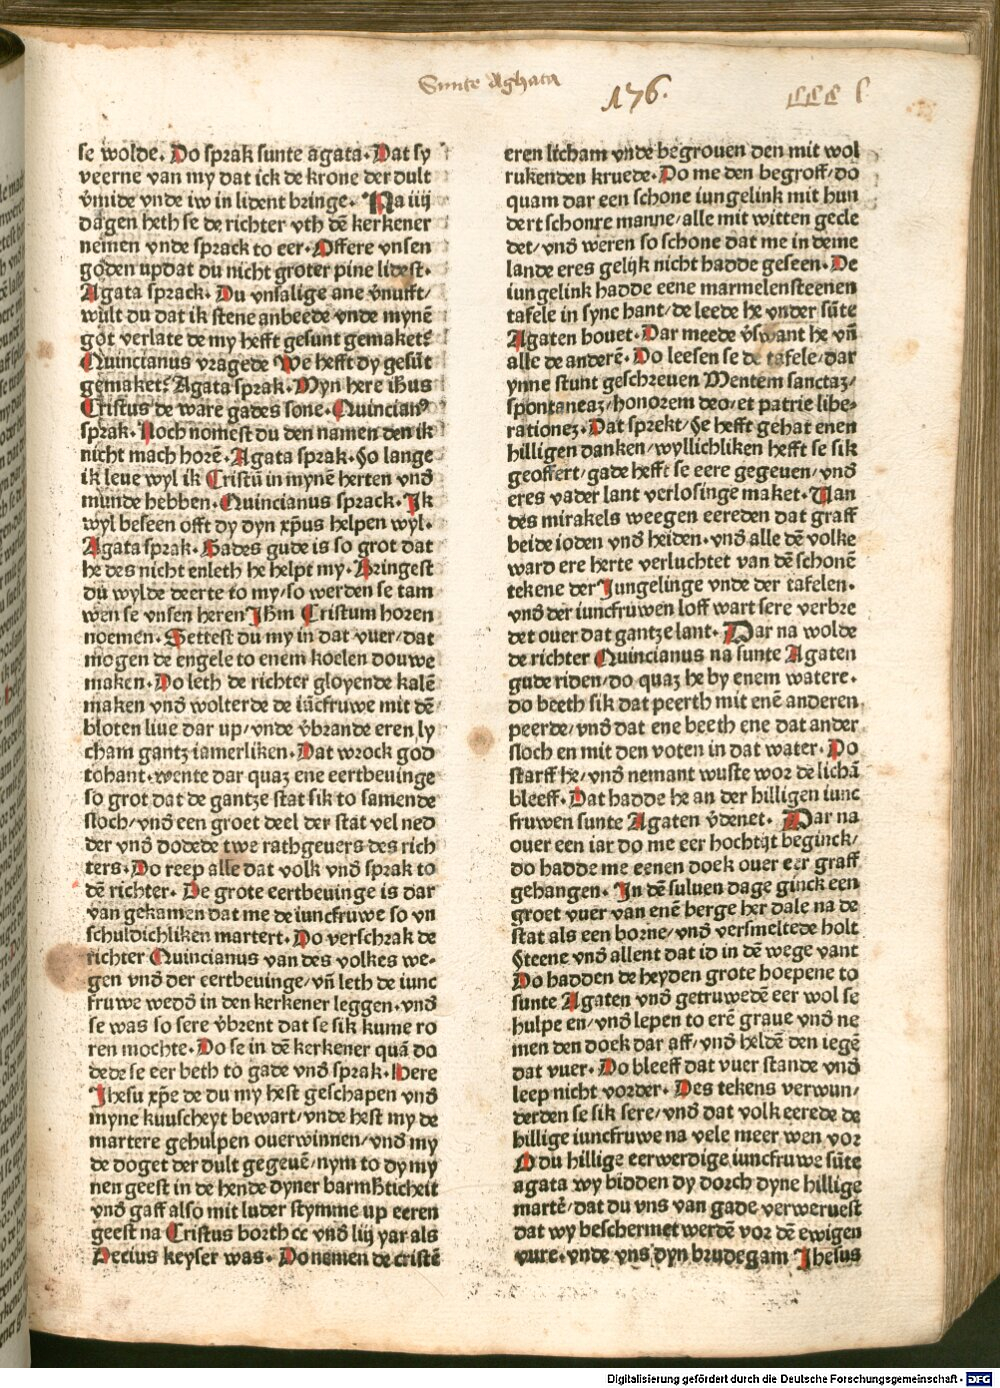 Sunte Aghata
176.
CCC l
se wolde. Do sprak sunte agata. Dat sy
veerne van my dat ick de krone der dult
v̄mide vnde iw in lident bringe. Na iiij
dagen heth se de richter vth dē kerkener
nemen vnde sprack to eer. Offere vnsen
goden updat du nicht groter pine lidest.
Agata sprack. Du vnsalige ane v̄nufft/
wult du dat ik stene anbeede vnde mynē
got verlate de my hefft gesunt gemaket?
Quincianus vragede We hefft dy gesūt
gemaket? Agata sprak. Myn here ihus
Cristus de ware gades sone. Quincian⁹
sprak. Noch nomest du den namen den ik
nicht mach horē. Agata sprak. So lange
ik leue wyl ik Cristū in mynē herten vnd̄
munde hebben. Quincianus sprack. Ik
wyl beseen offt dy dyn xp̄us helpen wyl.
Agata sprak. Gades gude is so grot dat
he des nicht enleth he helpt my. Bringest
du wylde deerte to my/so werden se tam
wen se vnsen heren Ihm̄ Cristum horen
noemen. Settest du my in dat vuer/dat
mogen de engele to enem koelen douwe
maken. Do leth de richter gloyende kalē
maken vnd̄ wolterde de iūcfruwe mit dē
bloten liue dar up/vnde v̄brande eren ly
cham gantz iamerliken. Dat wrock god
tohant. wente dar quaz ene eertbeuinge
so grot dat de gantze stat sik to samende
sloch/vnd̄ een groet deel der stat vel ned
der vnd̄ dodede twe rathgeuers des rich
ters. Do reep alle dat volk vnd̄ sprak to
dē richter. De grote eertbeuinge is dar
van gekamen dat me de iuncfruwe so vn
schuldichliken martert. Do verschrak de
richter Quincianus van des volkes we-
gen vnd̄ der eertbeuinge/vn̄ leth de iunc
fruwe wed̄ in den kerkener leggen. vnd̄
se was so sere v̄brent dat se sik kume ro
ren mochte. Do se in dē kerkener quā do
dede se eer beth to gade vnd̄ sprak. Here
Ihesu xp̄e de du my hest geschapen vnd̄
myne kuuscheyt bewart/vnde hest my de
martere gehulpen ouerwinnen/vnd̄ my
de doget der dult gegeuē/nym to dy my
nen geest in de hende dyner barmh̄ticheit
vnd̄ gaff also mit luder stymme up eeren
geest na Cristus borth cc vnd̄ liij yar als
Decius keyser was. Do nemen de cristē
eren licham vnde begrouen den mit wol
rukenden kruede. Do me den begroff/do
quam dar een schone iungelink mit hun
dert schonre manne/alle mit witten gecle
det/vnd̄ weren so schone dat me in deme
lande eres gelijk nicht hadde geseen. De
iungelink hadde eene marmelensteenen
tafele in syne hant/de leede he vnder sūte
Agaten houet. Dar meede v̄swant he vn̄
alle de anderē. Do leesen se de tafele/dar
ynne stunt geschreuen Mentem sanctaz/
spontaneaz/honorem deo/et patrie libe-
rationez. Dat sprekt/Se hefft gehat enen
hilligen danken/wyllichliken hefft se sik
geoffert/gade hefft se eere gegeuen/vnd̄
eres vader lant verlosinge maket. Van
des mirakels weegen eereden dat graff
beide ioden vnd̄ heiden. vnd̄ alle dē volke
ward ere herte verluchtet van dē schonē
tekene der Jungelinge vnde der tafelen.
vnd̄ der iuncfruwen loff wart sere verbre
det ouer dat gantze lant. Dar na wolde
de richter Quincianus na sunte Agaten
gude riden/do quaz he by enem watere.
do beeth sik dat peerth mit enē anderen
peerde/vnd̄ dat ene beeth ene dat ander
sloch en mit den voten in dat water. Do
starff he/vnd̄ nemant wuste wor de lichā
bleeff. Dat hadde he an der hilligen iunc
fruwen sunte Agaten v̄denet. Dar na
ouer een iar do me eer hochtijt beginck/
do hadde me eenen doek ouer eer graff
gehangen. In dē suluen dage ginck een
groet vuer van enē berge her dale na de
stat als een borne/vnd̄ versmeltede holt
Steene vnd̄ allent dat id in dē wege vant
Do hadden de heyden grote hoepene to
sunte Agaten vnd̄ getruwedē eer wol se
hulpe en/vnd̄ lepen to erē graue vnd̄ ne
men den doek dar aff/vnd̄ heldē den iegē
dat vuer. Do bleeff dat vuer stande vnd̄
leep nicht vorder. Des tekens verwun/
derden se sik sere/vnd̄ dat volk eerede de
hillige iuncfruwe na vele meer wen vor
O du hillige eerwerdige iuncfruwe sūte
agata wy bidden dy dorch dyne hillige
marte᷑/dat du vns van gade verweruest
dat wy beschermet werdē vor dē ewigen
vure. vnde vns dyn brudegam Ihesus
Digitalisierung gefördert durch die Deutsche Forschungsgemeinschaft - DFG